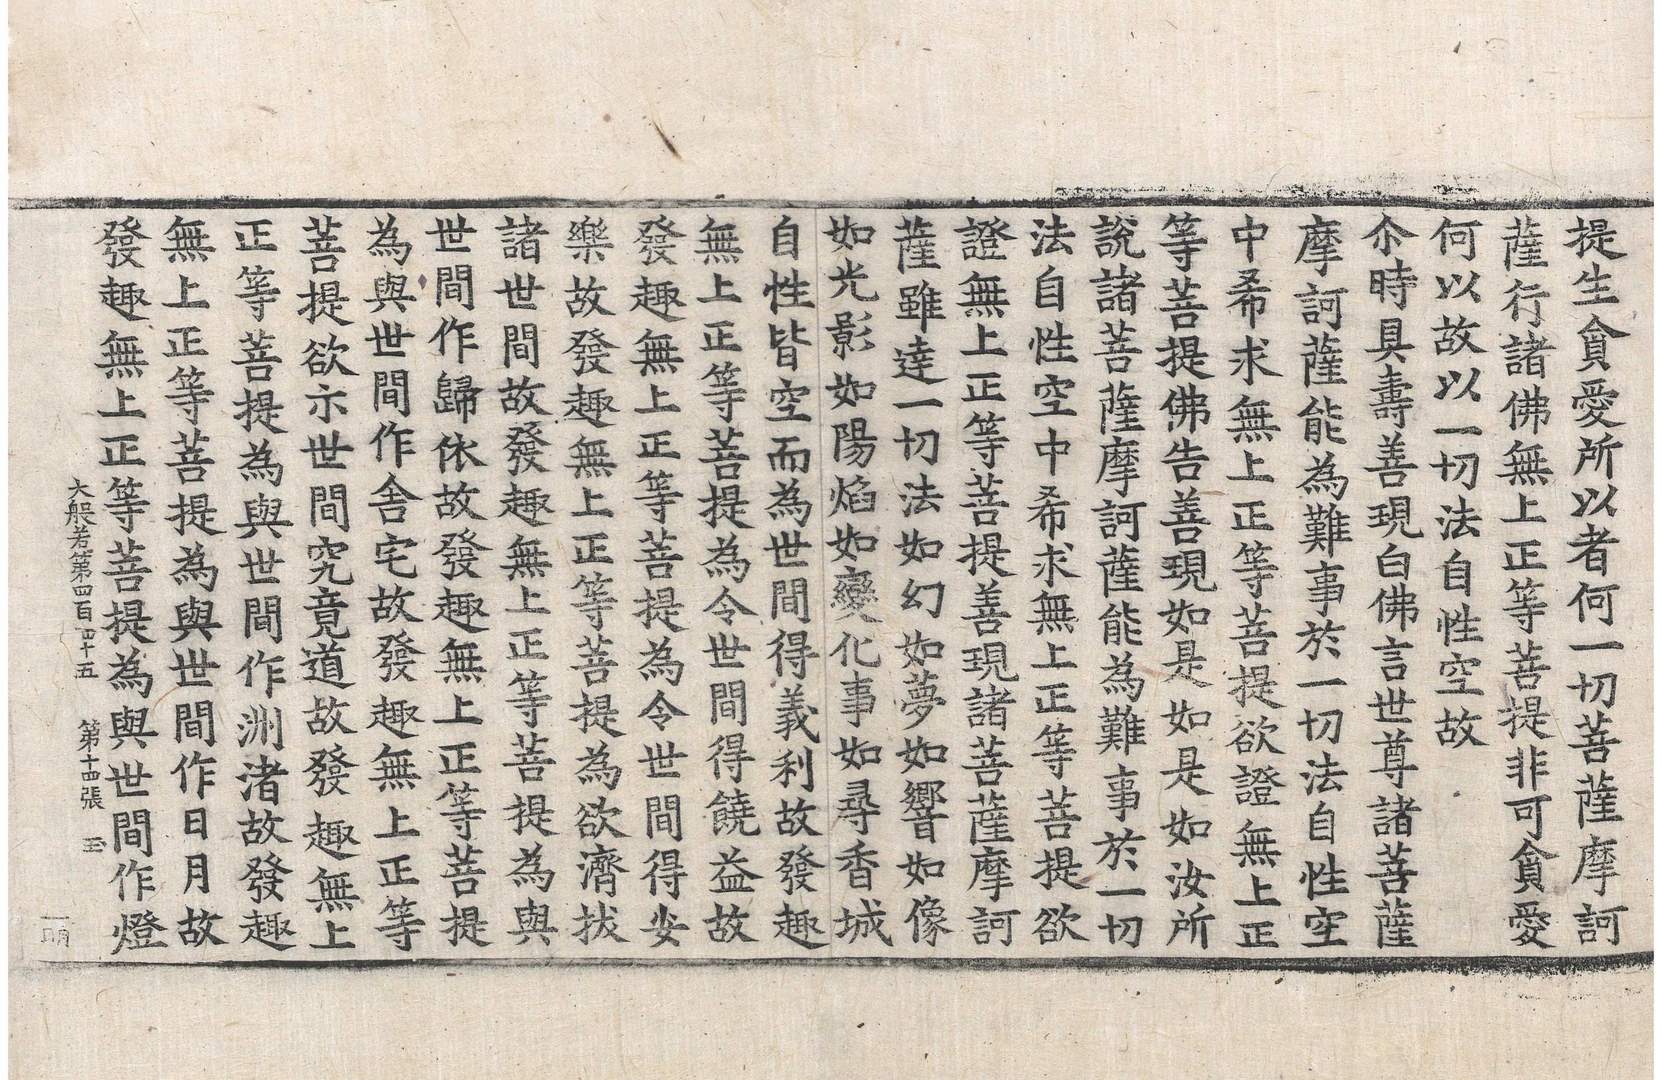 提生貪愛所以者何一切菩薩摩訶
薩行諸佛無上正等菩提非可貪愛
何以故以一切法自性空故
尒時具壽善現白佛言世尊諸菩薩
摩訶薩能為難事於一切法自性空
中希求無上正等菩提欲證無上正
等菩提佛告善現如是如是如汝所
說諸菩薩摩訶薩能為難事於一切
法自性空中希求無上正等菩提欲
證無上正等菩提善現諸菩薩摩訶
薩雖達一切法如幻如夢如響如像
如光影如陽焰如變化事如尋香城
自性皆空而為世間得義利故發趣
無上正等菩提為令世間得饒益故
發趣無上正等菩提為令世間得安
樂故發趣無上正等菩提為欲濟拔
諸世間故發趣無上正等菩提為與
世間作歸依故發趣無上正等菩提
為與世間作舍宅故發趣無上正等
菩提欲示世間究竟道故發趣無上
正等菩提為與世間作洲渚故發趣
無上正等菩提為與世間作日月故
發趣無上正等菩提為與世間作燈
大般若第四百四十五 第十四張 玉